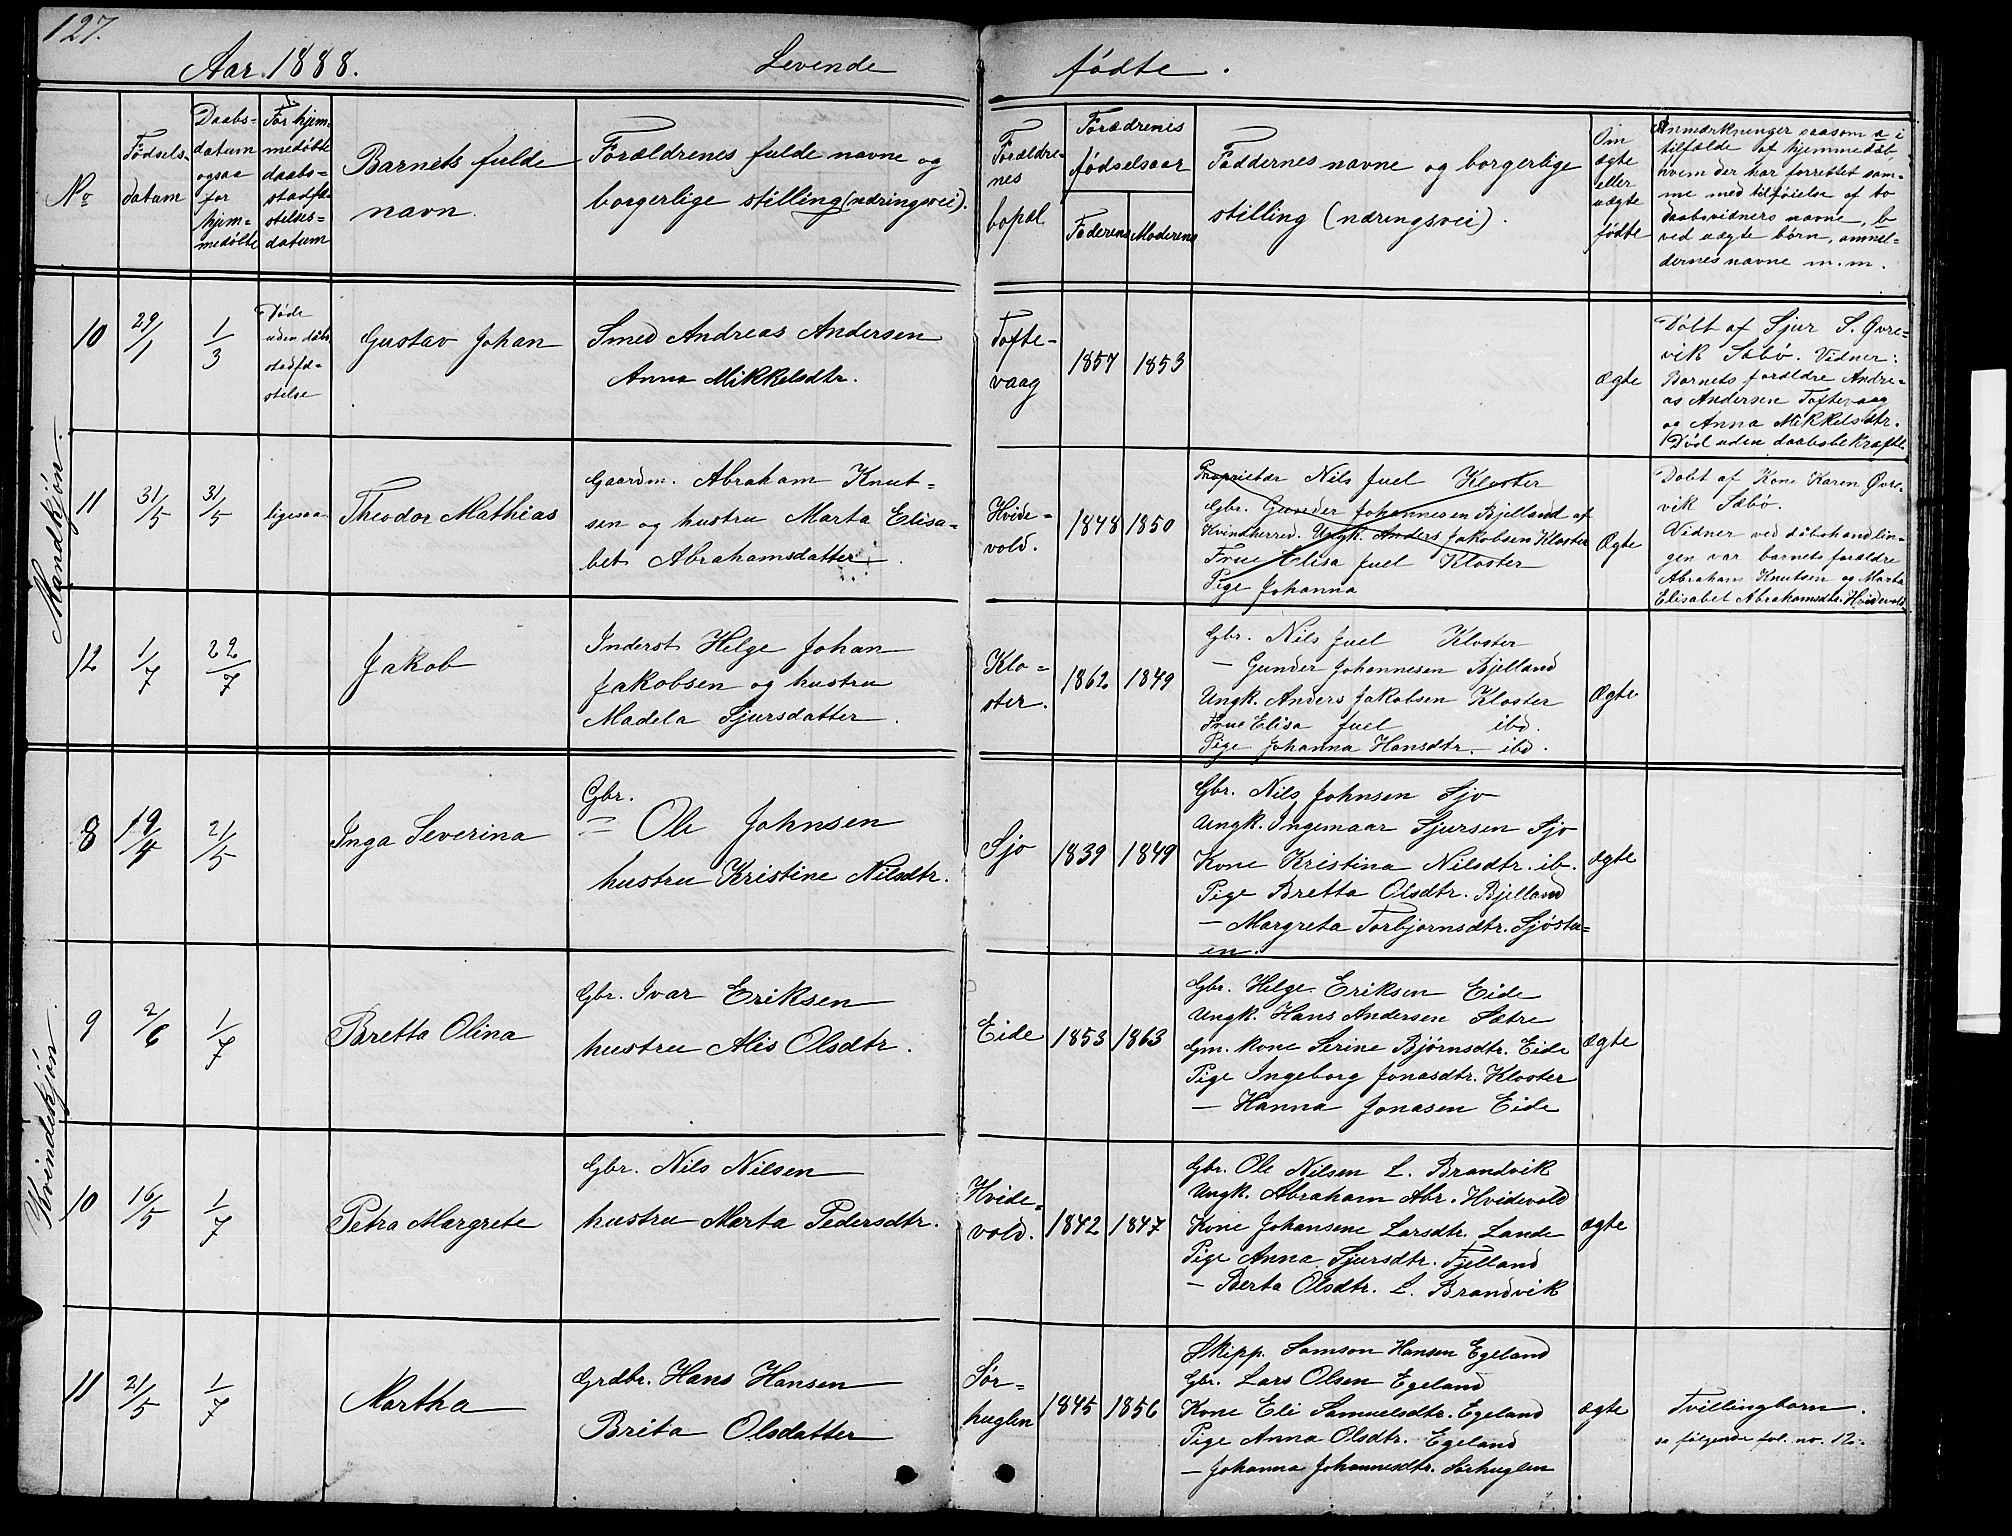 127.
Aar. 1888. Levende fødte.
No
Fødsels-
datum
Daabs-
datum
ogsaa
for
hjem-
medøbte
For hjem-
medøbte
daabs-
stadfæ-
stelses-
datum
Barnets fulde
navn.
Forældrenes fulde navne og
borgerlige stilling (næringsvei).
Forældre-
nes
bopæl
Forædrenes
fødselsaar
Faderens Moderens
Faddernes navne og borgerlige
stilling (næringsvei).
Om
ægte
eller
uægte
fødte
Anmærkninger saasom a i
tilfælde af hjemmedåb,
hvem der har forrettet sam-
me med tilføielse af to
daabsvidners navne, b
ved uægte børn, anmel-
dernes navne m.m.
Mandkjøn.
10 29/1 1/3
Døde
uden dåbs
stadfæ-
stelse
Gustav Johan
Smed Andreas Andersen
Anna Mikkelsdtr.
Tofte-
vaag
1857 1853
Ægte
Døbt af Sjur S. Øvre-
vik Sæbø. Vidner:
Barnets forældre Andre-
as Andersen Toftevaag
og Anna Mikkelsdtr.
Død uden daabsbekræfte
11 31/5 31/5 ligesaa Theodor Mathias
Gaardm. Abraham Knut-
sen og hustru Marta Elisa-
bet Abrahamsdatter.
Hvide-
vold.
1848 1850
Proprietær Nils Juel Kloster
Gbr. Gunder Johannesen Bjelland af
Kvindherred. Ungk. Anders Jakobsen Kloster
Frue Elisa Juel Kloster
Pige Johanna
Ægte
Døbt af Kone Karen Øvre-
vik Sæbø.
Vidner ved dåbshandlin-
gen var barnets forældre
Abraham Knutsen og Marta
Elisabet Abrahamsdtr. Hvidevold
12 1/7 22/7 Jakob
Inderst Helge Johan
Jakobsen og hustru
Madela Sjursdatter.
Klo-
ster.
1862 1849
Gbr. Nils Juel Kloster
— Gunder Johannesen Bjelland
Ungk. Anders Jakobsen Kloster
Frue Elisa Juel ibd.
Pige Johanna Hansdtr. — ibd.
Ægte
Kvindekjøn.
8 19/4 21/5 Inga Severina
Gbr.
= Ole Johnsen
hustru Kristine Nilsdtr.
Sjo 1839 1849
Gbr. Nils Johnsen Sjo
Ungk. Ingemaar Sjursen Sjo
Kone Kristina Nilsdtr. ib.
Pige Bretta Olsdtr. Bjelland
— Margreta Torbjørnsdtr. Sjøstu-
en.
ægte
9 2/6 1/7 Bretta Olina
Gbr. Ivar Eriksen
hustru Alis Olsdtr.
Eide 1853 1863
Gbr. Helge Eriksen Eide
Ungk. Hans Andersen Sætre
Gm. kone Serine Bjørnsdtr. Eide
Pige Ingeborg Jonasdtr. Kloster
— Hanna Jonasen Eide
ægte
10 16/5 1/7 Petra Margrete
Gbr. Nils Nilsen
hustru Marta Pedersdtr.
Hvide-
vold.
1842 1847
Gbr. Ole Nilsen L. Brandvik
Ungk. Abraham Abr. Hvidevold
Kone Johansene Larsdtr. Lande
Pige Anna Sjursdtr. Fjelland
— Berta Olsdtr. L. Brandvik
ægte
11 21/5 1/7 Martha
Grdbr. Hans Hansen
Brita Olsdatter
Sør-
huglen
1845 1856
Skipp. Samson Hansen Egeland
Gbr. Lars Olsen Egeland
Kone Eli Samuelsdtr. Egeland
Pige Anna Olsdtr. Egeland
— Johanna Johannesdtr. Sørhuglen
ægte
Tvillingbarn.
se følgende fol. no. 12.